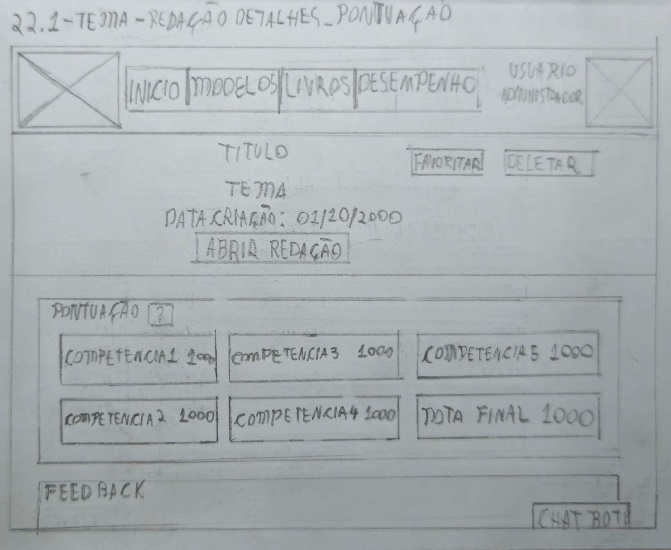 22.1-TEMA-REDAÇÃO DETALHES_PONTUAÇÃO
INICIO MODELOS LIVROS DESEMPENHO
USUARIO
ADMINISTRADOR
TITULO
FAVORITAR DELETAR
TEMA
DATA CRIAÇÃO: 01/10/2000
ABRIR REDAÇÃO
PONTUAÇÃO ?
COMPETENCIA1 1000 COMPETENCIA3 1000 COMPETENCIA5 1000
COMPETENCIA2 1000 COMPETENCIA4 1000 NOTA FINAL 1000
FEEDBACK
CHAT BOT